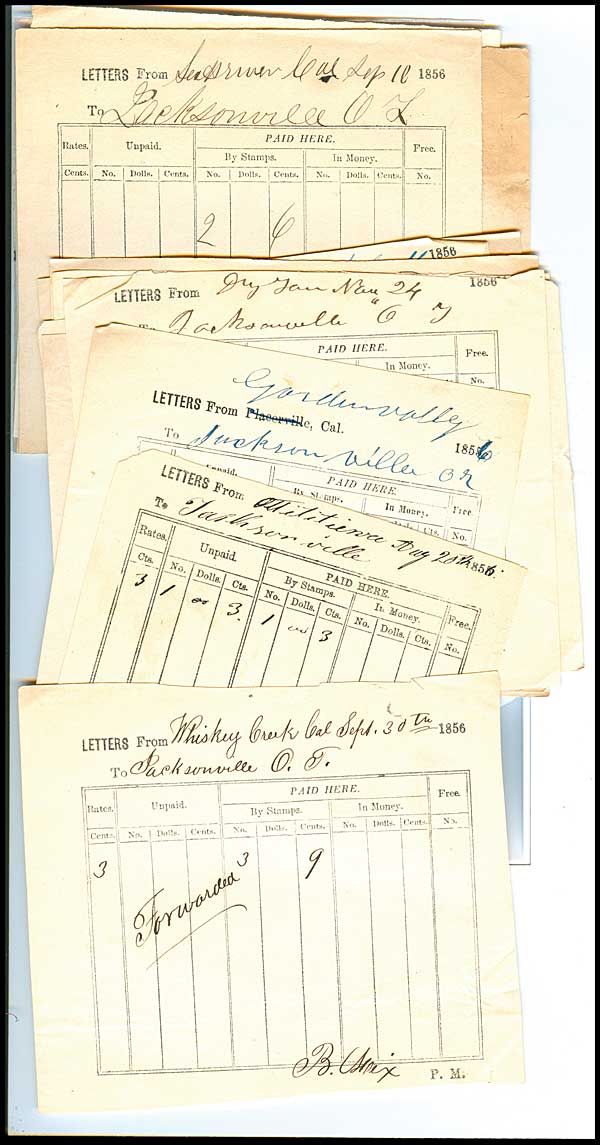 LETTERS From Cal Sep 10 1856
To Jacksonville O T
PAID HERE.
Rates. Unpaid. By Stamps. In Money. Free.
Cents. No. Dolls. Cents. No. Dolls. Cents. No. Dolls. Cents. No.
2 6
1856
LETTERS From Dry Nov 24 1856
To Jacksonville O T
PAID HERE.
In Money. Free.
No.
Gardenvalley
LETTERS From Placerville, Cal.
1856
To Jackson ville
Unpaid. PAID HERE.
By Stamps. In Money. Free
Dolls. Cts. No.
LETTERS From Aug 20th 1856.
To Jacksonville
Rates. Unpaid. PAID HERE.
By Stamps. In Money. Free.
Cts. No. Dolls. Cts. No. Dolls. Cts. No. Dolls. Cts. No.
3 1 3. 1 3
LETTERS From Whiskey Creek Cal Sept. 30th 1856
To Jacksonville O. T.
PAID HERE.
Rates. Unpaid. By Stamps. In Money. Free.
Cents. No. Dolls. Cents. No. Dolls. Cents. No. Dolls. Cents. No.
3 3 9
Forwarded
B. P. M.